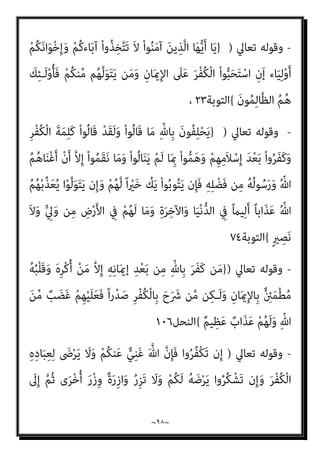 - وقوله تعالي ( {يَا أَيُّهَا الَّذِينَ آمَنُواْ لاَ تَتَّخِذُواْ آبَاءكُمْ وَإِخْوَانَكُمْ
أَوْلِيَاء إَنِ اسْتَحَبُّواْ الْكُفْرَ عَلَى الإِيمَانِ وَمَن يَتَوَلَّهُم مِّنكُمْ فَأُوْلَـئِكَ
هُمُ الظَّالِمُونَ {التوبة٢٣ ،
- وقوله تعالي ( {يَحْلِفُونَ بِاللّهِ مَا قَالُواْ وَلَقَدْ قَالُواْ كَلِمَةَ الْكُفْرِ
وَكَفَرُواْ بَعْدَ إِسْلاَمِهِمْ وَهَمُّواْ بِمَا لَمْ يَنَالُواْ وَمَا نَقَمُواْ إِلاَّ أَنْ أَغْنَاهُمُ
اللّهُ وَرَسُولُهُ مِن فَضْلِهِ فَإِن يَتُوبُواْ يَكُ خَيْراً لَّهُمْ وَإِن يَتَوَلَّوْا يُعَذِّبْهُمُ
اللّهُ عَذَاباً أَلِيماً فِي الدُّنْيَا وَالآخِرَةِ وَمَا لَهُمْ فِي الأَرْضِ مِن وَلِيٍّ وَلاَ
نَصِيرٍ {التوبة٧٤
- وقوله تعالي ( {مَن كَفَرَ بِاللّهِ مِن بَعْدِ إيمَانِهِ إِلاَّ مَنْ أُكْرِهَ وَقَلْبُهُ
مُطْمَئِنٌّ بِالإِيمَانِ وَلَـكِن مَّن شَرَحَ بِالْكُفْرِ صَدْراً فَعَلَيْهِمْ غَضَبٌ مِّنَ
اللّهِ وَلَهُمْ عَذَابٌ عَظِيمٌ {النحل١٠٦
- وقوله تعالي ( إِن تَكْفُرُوا فَإِنَّ اللَّهَ غَنِيٌّ عَنكُمْ وَلَا يَرْضَى لِعِبَادِهِ
الْكُفْرَ وَإِن تَشْكُرُوا يَرْضَهُ لَكُمْ وَلَا تَزِرُ وَازِرَةٌ وِزْرَ أُخْرَى ثُمَّ إِلَى
~٩٨~